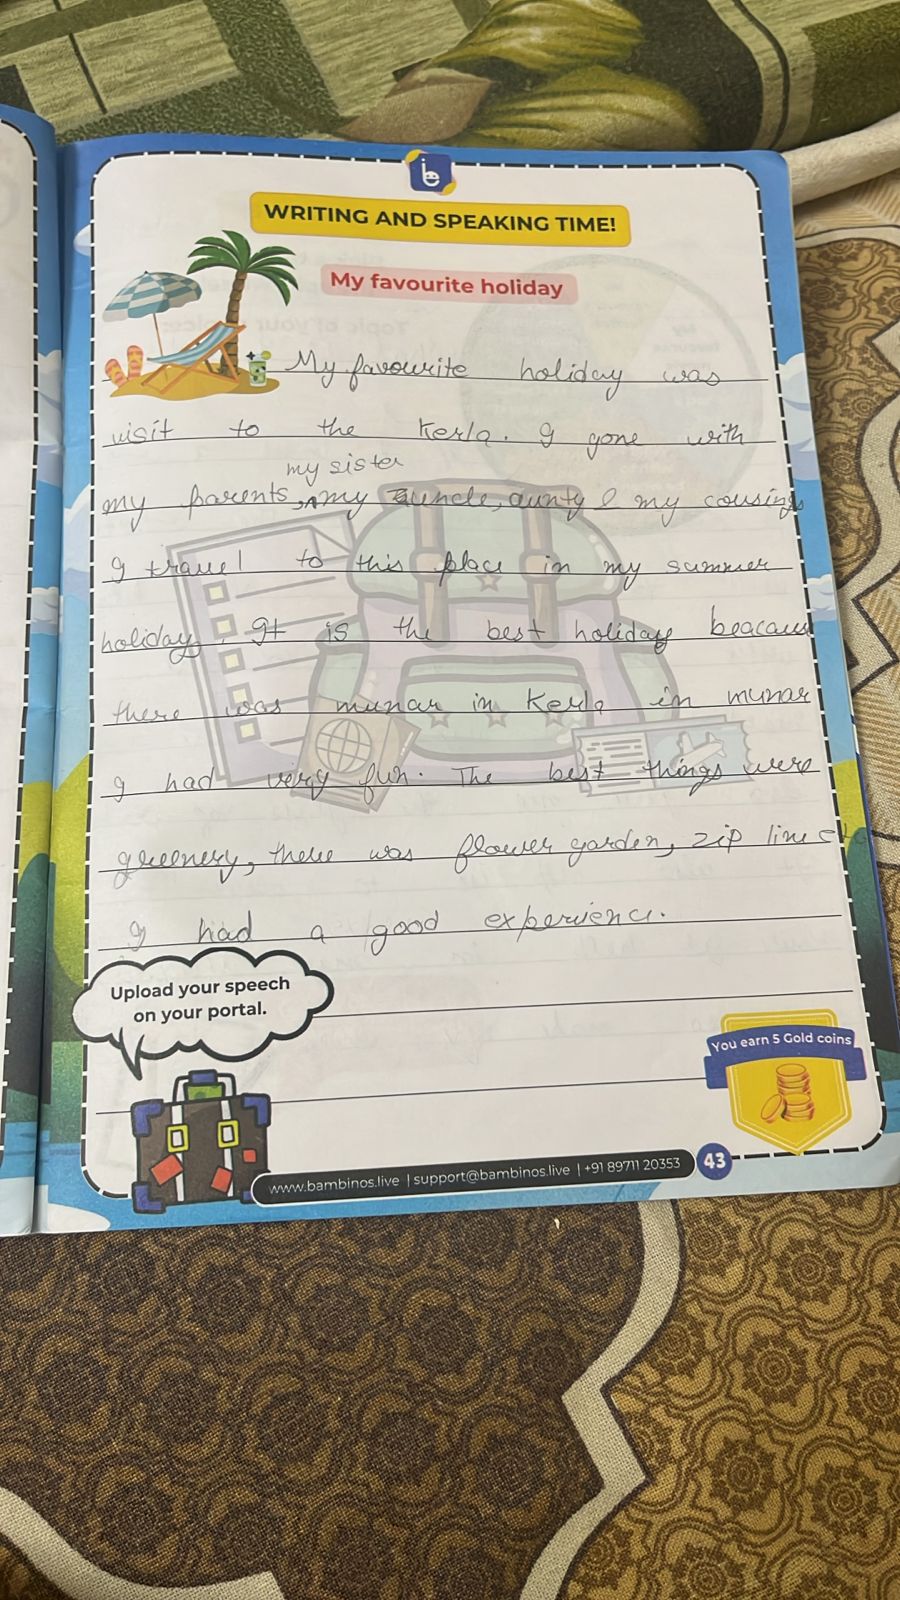 WRITING AND SPEAKING TIME!
My favourite holiday
My favourite holiday was
visit to the Kerla. I gone with
my sister
my parents, my uncle, aunty & my cousings
I travel to this place in my summer
holiday. It is the best holiday beacause
there was munar in Kerla in munar
I had very fun. The best things were
greenery, there was flower garden, zip line etc
I had a good experience.
Upload your speech
on your portal.
You earn 5 Gold coins
www.bambinos.live | support@bambinos.live | +91 89711 20353
43